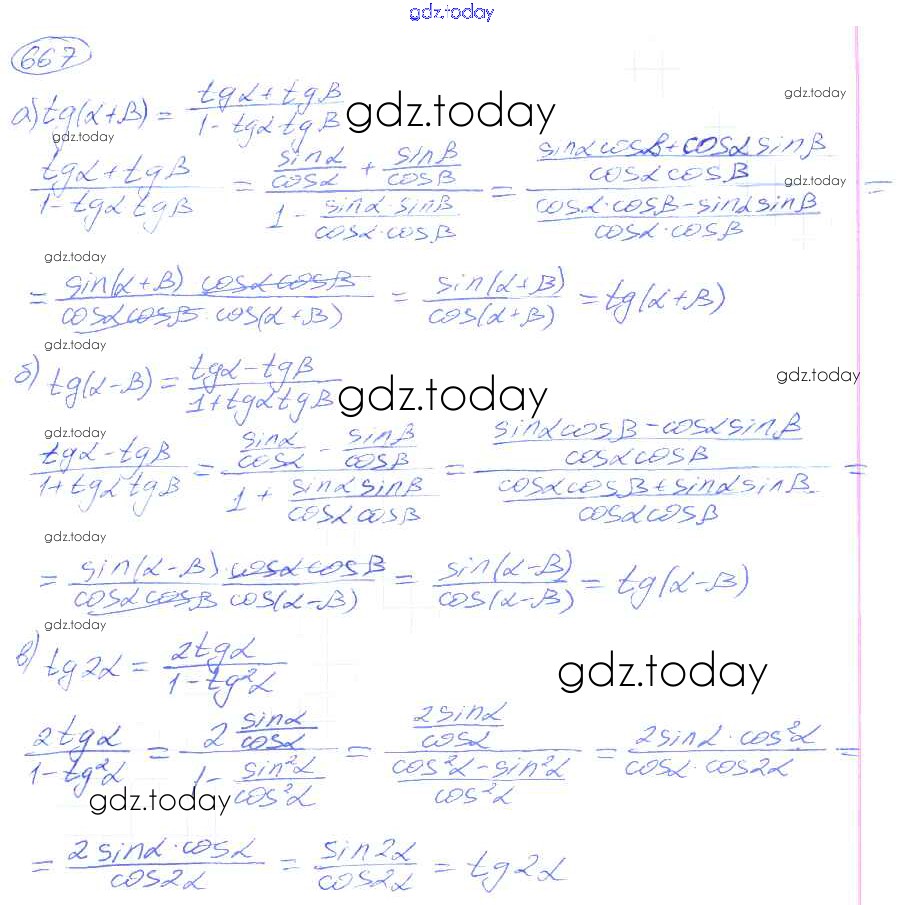 gdz.today
667
gdz.today
а) tg(α+β) = (tgα+tgβ)/(1-tgα tgβ)
gdz.today
gdz.today
(tgα+tgβ)/(1-tgα tgβ) = (sinα/cosα + sinβ/cosβ)/(1 - (sinα·sinβ)/(cosα·cosβ)) = ((sinαcosβ+cosαsinβ)/(cosαcosβ))/((cosα·cosβ-sinαsinβ)/(cosα·cosβ)) =
gdz.today
gdz.today
= (sin(α+β) cosαcosβ)/(cosαcosβ·cos(α+β)) = sin(α+β)/cos(α+β) = tg(α+β)
gdz.today
б) tg(α-β) = (tgα-tgβ)/(1+tgαtgβ)
gdz.today
gdz.today
gdz.today
(tgα-tgβ)/(1+tgα tgβ) = (sinα/cosα - sinβ/cosβ)/(1 + (sinαsinβ)/(cosαcosβ)) = ((sinαcosβ-cosαsinβ)/(cosαcosβ))/((cosαcosβ+sinαsinβ)/(cosαcosβ)) =
gdz.today
= (sin(α-β)·cosαcosβ)/(cosαcosβ cos(α-β)) = sin(α-β)/cos(α-β) = tg(α-β)
gdz.today
в) tg2α = 2tgα/(1-tg²α)
gdz.today
2tgα/(1-tg²α) = (2 sinα/cosα)/(1 - sin²α/cos²α) = (2sinα/cosα)/((cos²α-sin²α)/cos²α) = (2sinα·cos²α)/(cosα·cos2α) =
gdz.today
= (2sinα·cosα)/cos2α = sin2α/cos2α = tg2α